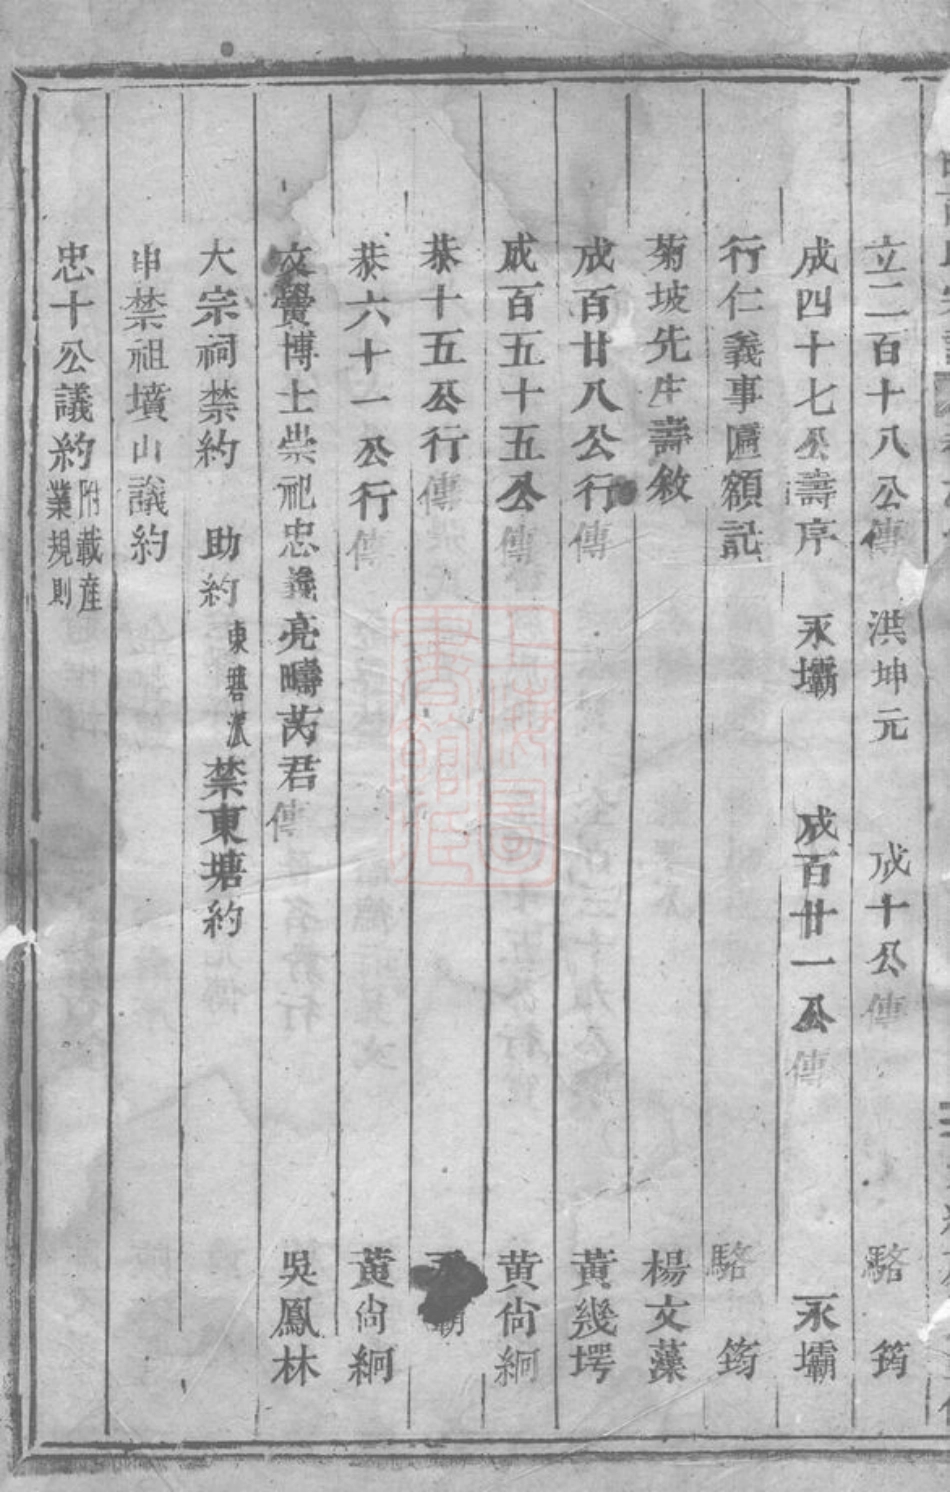 立二百十八公傳 洪坤元 成十公傳 駱筠
成四十七公壽序 永壩 成百廿一公傳 永壩
行仁義事匾額記 駱筠
菊坡先生壽敘 楊文藻
成百廿八公行傳 黃幾堮
成百五十五公傳 黃尙絅
恭十五公行傳
恭六十一公行傳 黃尙絅
文學博士崇祀忠義亮疇芮君傳 吳鳳林
大宗祠禁約 助約 東礐派 禁東塘約
申禁祖墳山議約
忠十公議約 附載産業規則